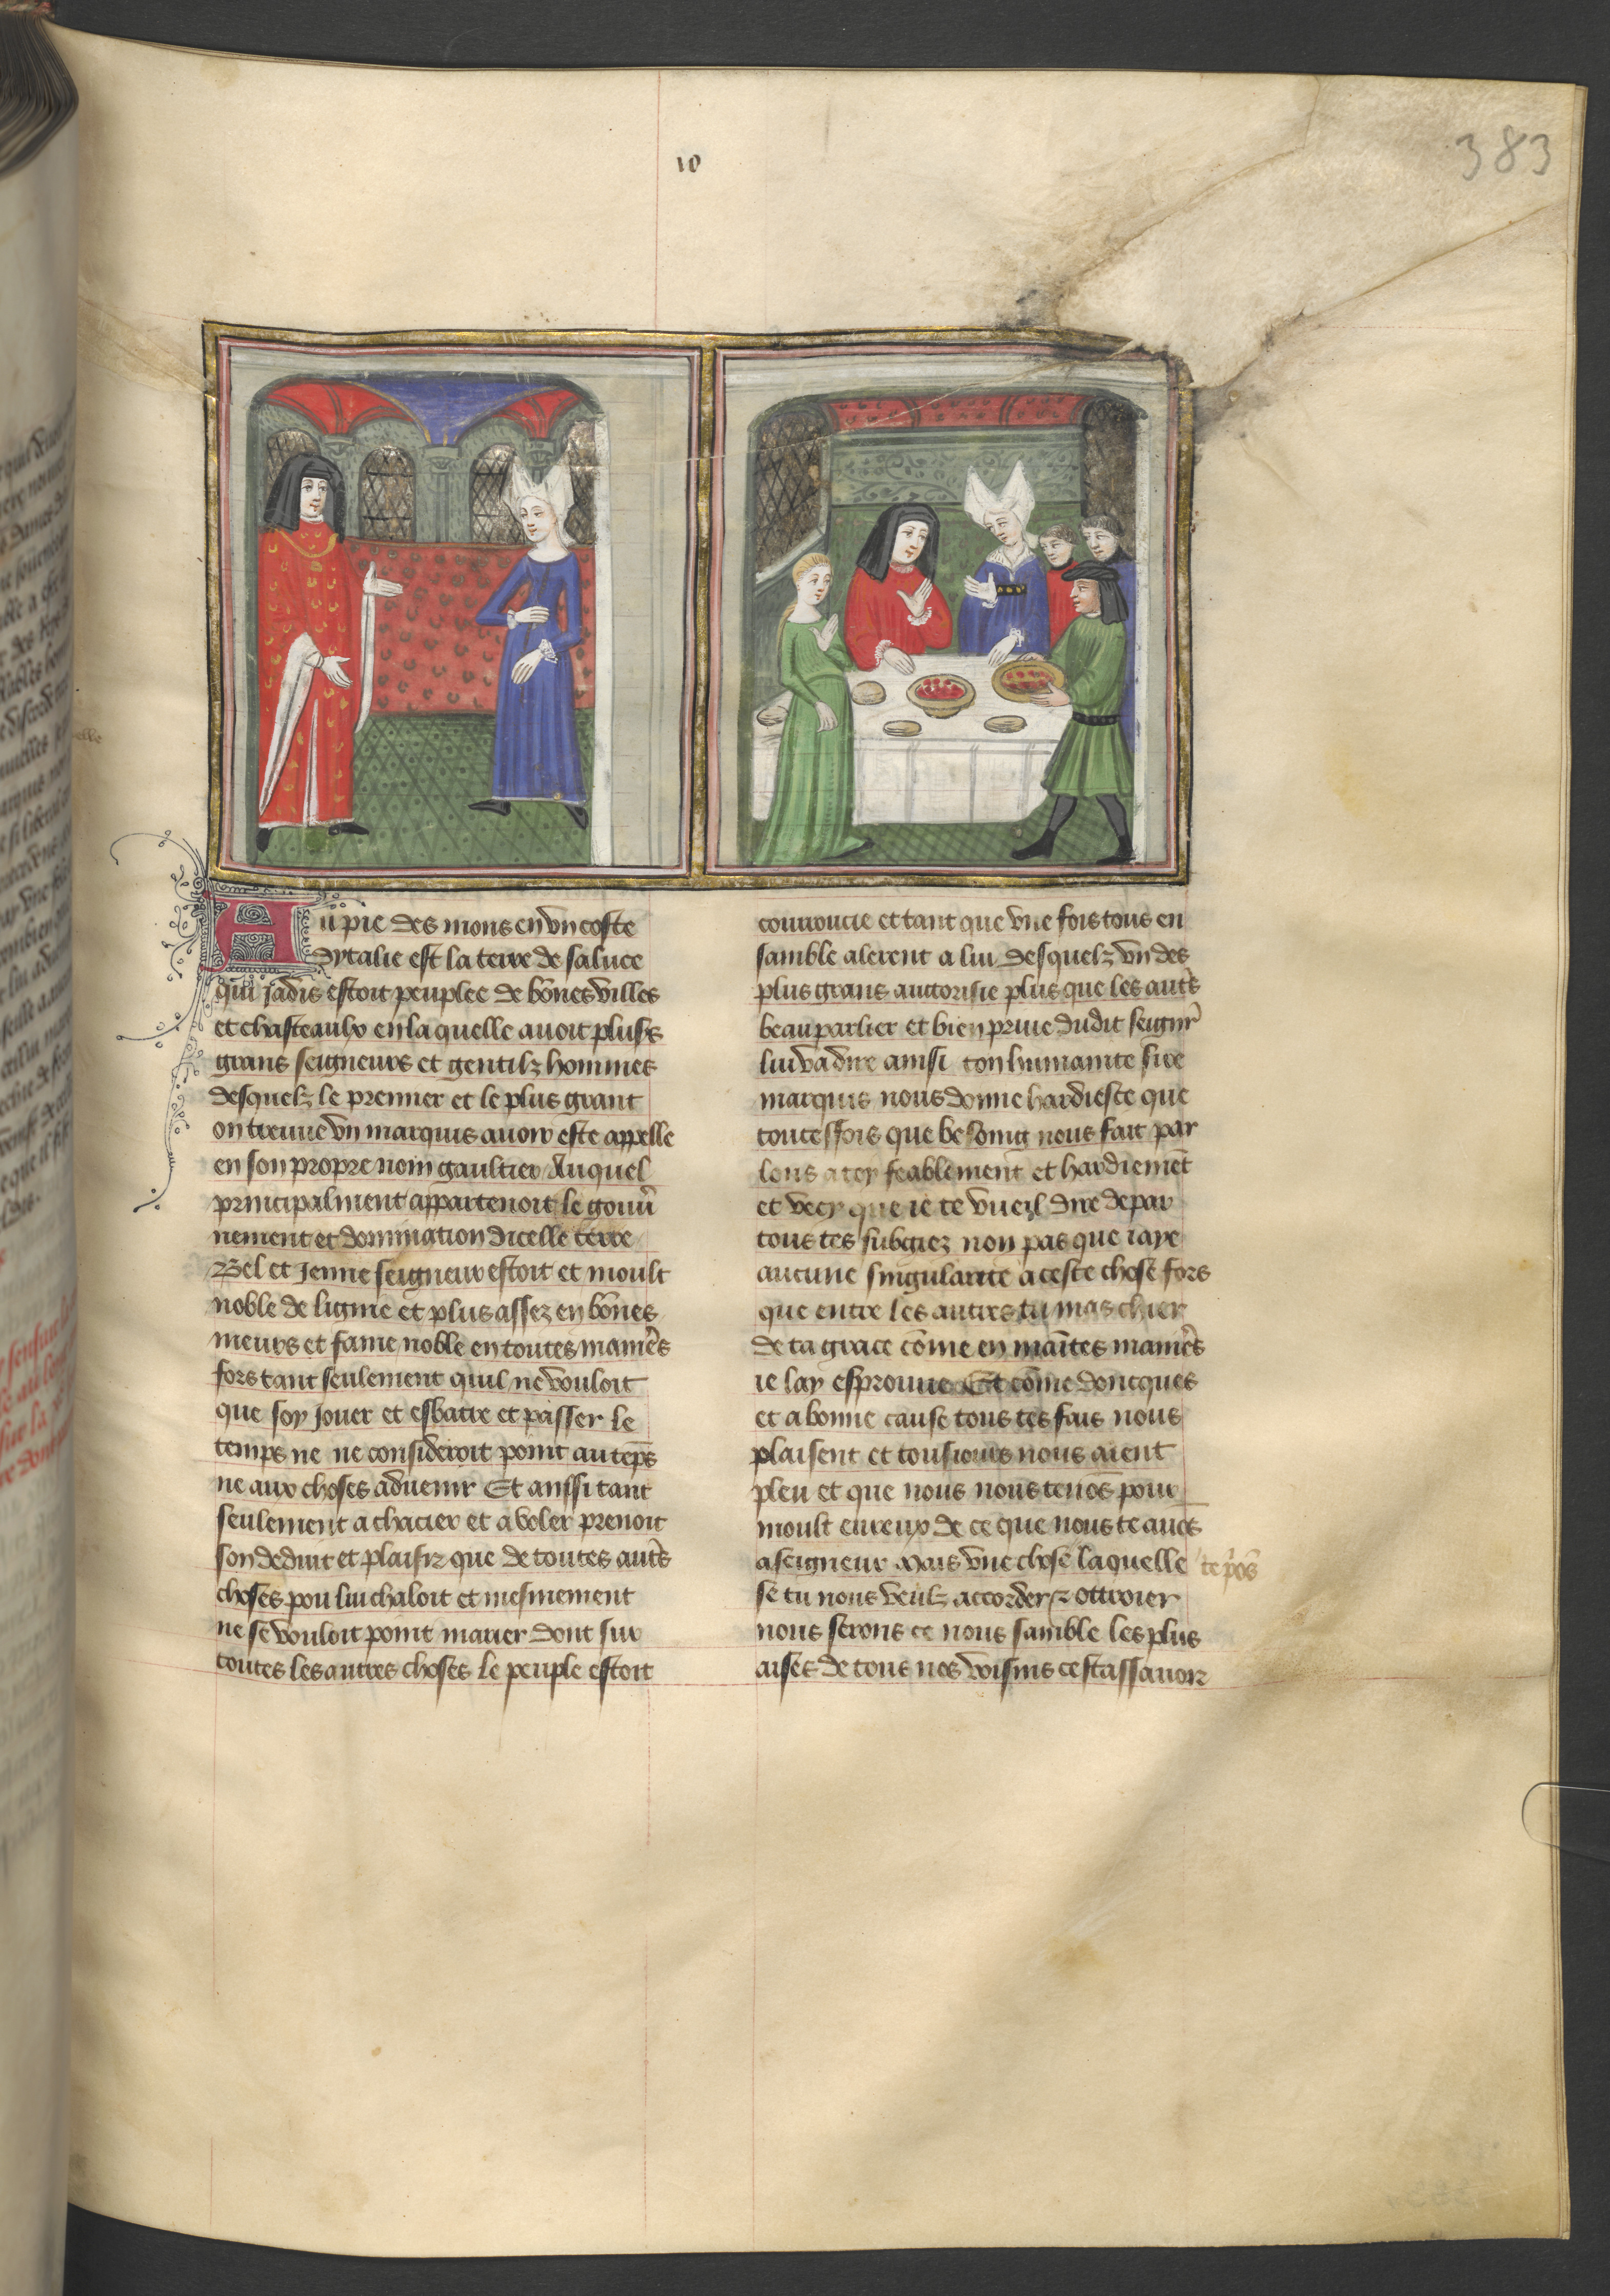 10
383
Au pie des mons en vn coste
dytalie est la terre de saluce
qui jadis estoit peuplee de bōnes villes
et chasteaulx en laquelle auoit plusrs
grans seigneurs et gentilz hommes
desquelz le premier et le plus grant
on treuue vn marquis auoir este appelle
en son propre nom gaultier Auquel
principalment appartenoit le gouu̾
nement et domination dicelle terre
Bel et Jenne seigneur estoit et moult
noble de lignie et plus assez en bōnes
meurs et fame noble en toutes manie̾s
fors tant seulement quil ne vouloit
que soy jouer et esbatre et passer le
temps ne ne consideroit point au tēps
ne aux choses aduenir Et aussi tant
seulement a chacier et a voler prenoit
son deduit et plaisir que de toutes aut̾s
choses pou lui chaloit et mesmement
ne se vouloit point marier dont sur
toutes les autres choses le peuple estoit
courroucie et tant que vne fois tous en
samble alerent a lui desquelz vn des
plus grans auctorisie plus que les aut̾s
beau parlier et bien priue dudit seign̾r
lui va dire ainsi ton humanite sire
marquis nous donne hardiesce que
toutesfois que besoing nous fait par
lons a toy feablement et hardiemēt
et vecy que ie te vueil dire de par
tous tes subgiez non pas que iaye
aucune singularite a ceste chose fors
que entre les autres tu mas chier
de ta grace cōme en maītes manie̾s
ie lay esprouue Et cōme doncques
et a bonne cause tous tes fais nous
plaisent et tousiours nous aient
pleu et que nous nous tenōs pour
moult eureux de ce que nous te auōs
a seigneur Mais vne chose laquelle te p̾ōs
se tu nous veulz accorder & ottroier
nous serons ce nous samble les plus
aises de tous nos voisins cestassauoir